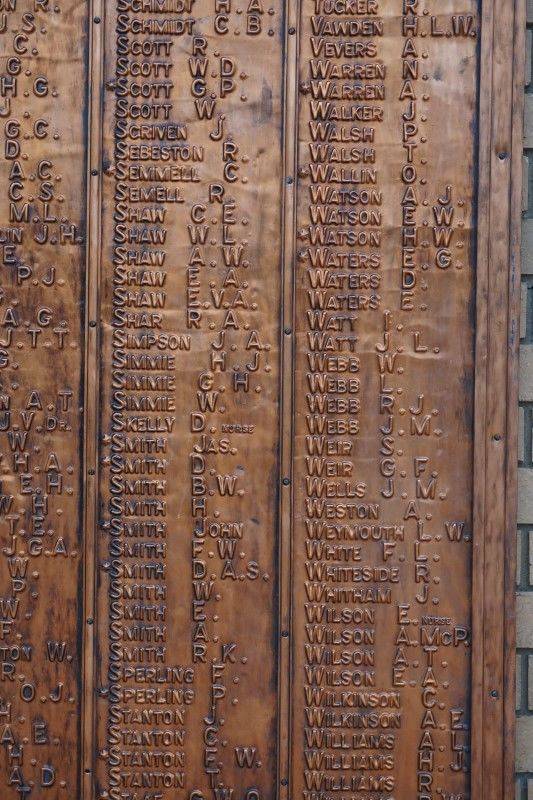 R.
J.S.
C.
G.
H.G.
J.
G.C.
D.
A.C.
C.S.
M.L.
J.H.
E.
P.J.
A.G.
J.T.T.
G.
A.T.
J.V. DR.
W.
H.A.
E.H.
H.
T.E.
J.G.A.
W.
P.
W.
F.
W.
R.
O.J.
H.
A.E.
H.
A.D.
SCHMIDT H.A.
SCHMIDT C.B.
SCOTT R.
SCOTT W.D.
SCOTT G.P.
SCOTT W.
SCRIVEN J.
SEBESTON R.
SEMMELL C.
SEMELL R.
SHAW C.E.
SHAW W.L.
SHAW A.W.
SHAW E.A.
SHAW E.V.A.
SHAR R.A.
SIMPSON J.A.
SIMMIE H.J.
SIMMIE G.H.
SIMMIE W.
SKELLY D. NURSE
SMITH JAS.
SMITH D.
SMITH B.W.
SMITH H.
SMITH JOHN
SMITH F.W.
SMITH D.A.S.
SMITH W.
SMITH E.
SMITH A.
SMITH R.K.
SPERLING F.
SPERLING P.
STANTON J.
STANTON C.
STANTON E.W.
STANTON T.
TUCKER R.
VAWDEN H.L.W.
VEVERS A.
WARREN N.
WARREN A.
WALKER J.
WALSH P.
WALSH T.
WALLIN O.
WATSON A.J.
WATSON E.W.
WATSON H.W.
WATERS E.G.
WATERS D.
WATERS E.
WATT I.
WATT J.L.
WEBB W.
WEBB L.
WEBB R.J.
WEBB J.M.
WEIR S.
WEIR G.F.
WELLS J.M.
WESTON A.
WEYMOUTH L.W.
WHITE F.L.
WHITESIDE R.
WHITHAM J.
WILSON E. NURSE
WILSON A.McP.
WILSON A.T.
WILSON E.A.
WILKINSON C.
WILKINSON A.E.
WILLIAMS A.L.
WILLIAMS H.J.
WILLIAMS R.